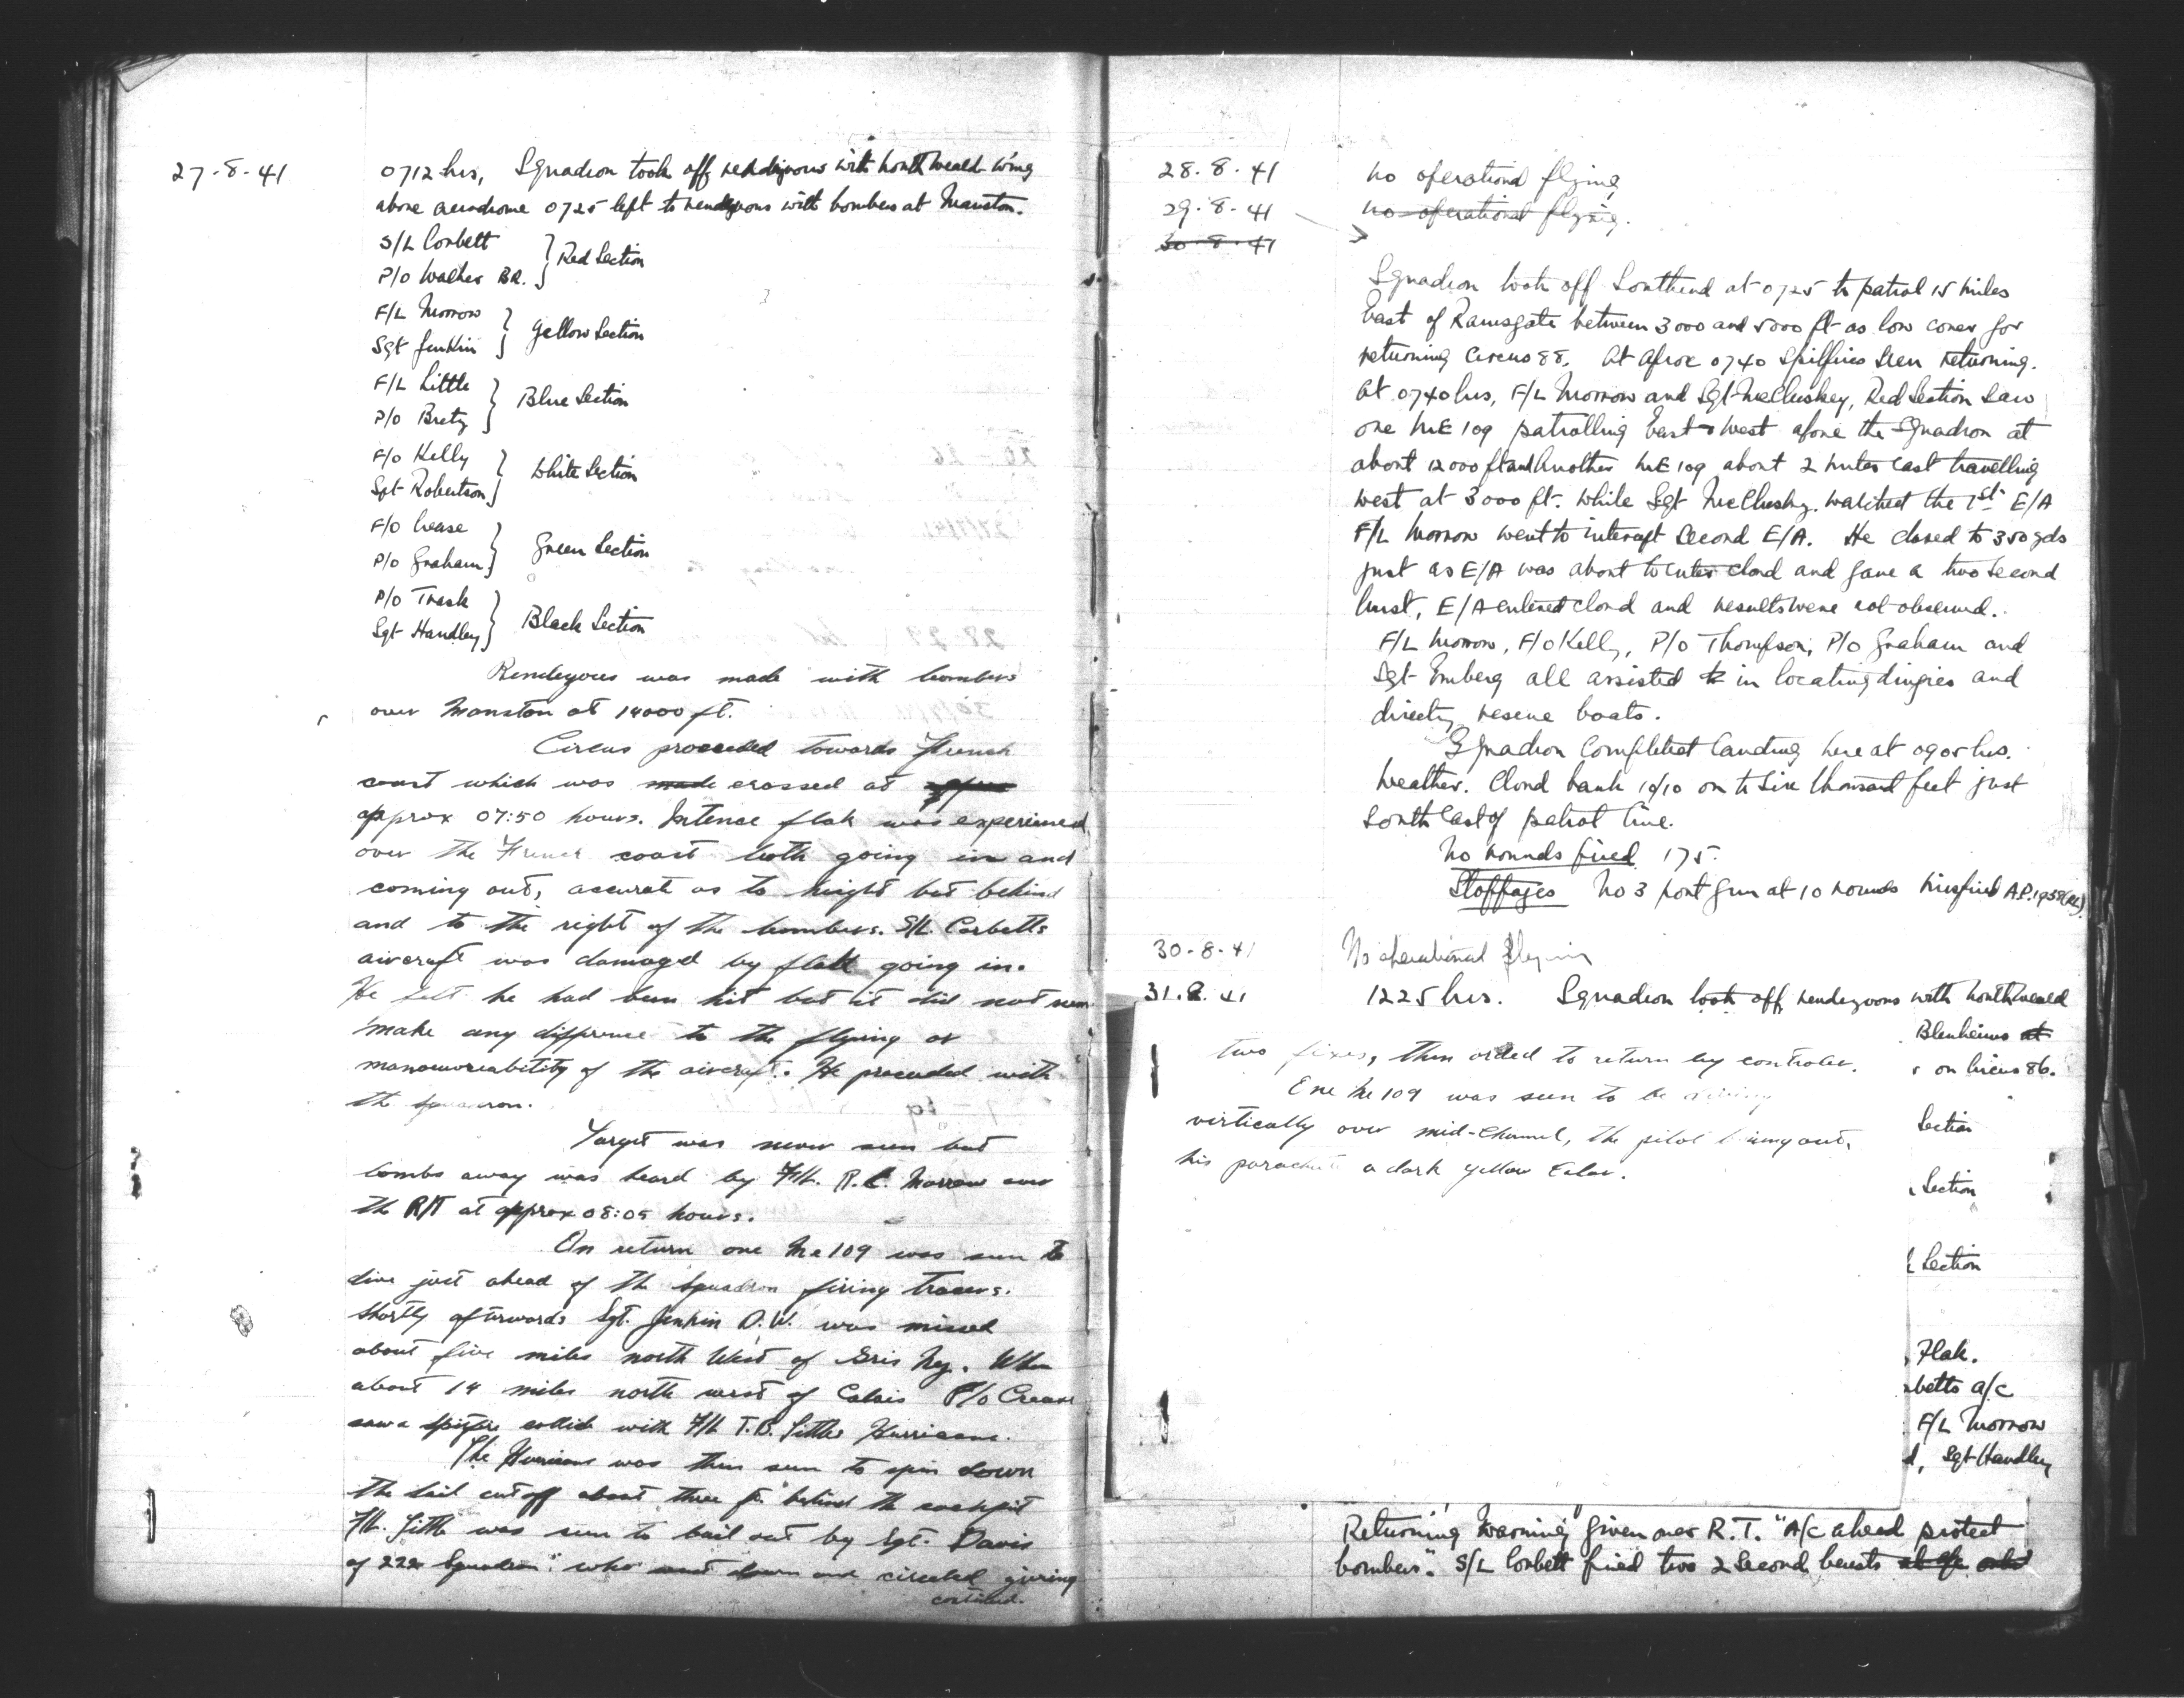 27-8-41
0712 hrs, Squadron took off rendezvous with North Weald Wing
above aerodrome 0725 left to rendezvous with bombers at Manston.
S/L Corbett
P/O Walker BR. } Red Section
F/L Morrow
Sgt Jenkin } Yellow Section
F/L Little
P/O Bretz } Blue Section
F/O Kelly
Sgt Robertson } White Section
F/O Crease
P/O Graham } Green Section
P/O Trask
Sgt Handley } Black Section
Rendezvous was made with bombers
over Manston at 14000 ft.
Circus proceeded towards French
coast which was made crossed at
approx 07:50 hours. Intence flak was experienced
over the French coast both going in and
coming out, accurate as to height but behind
and to the right of the bombers. S/L. Corbetts
aircraft was damaged by flak going in.
He felt he had been hit but it did not seem
make any diffrence to the flying or
manoeuvreability of the aircraft. He proceeded with
the squadron.
Target was never seen but
bombs away was heard by F/L. R.E. Morrow over
the R/T at approx 08:05 hours.
On return one Me 109 was seen to
dive just ahead of the squadron firing tracers.
Shortly afterwards Sgt. Jenkin D.W. was missed
about five miles north West of Gris Nez. When
about 14 miles north west of Calais F/O Crease
saw a spitfire collide with F/L T.B. Littles Hurricane.
The Hurricane was then seen to spin down
the tail cut off about three ft. behind the cockpit
F/L. Little was seen to bail out by Sgt. Davis
of 222 Squadron who went down and circled giving
continued.
28.8.41 No operational flying
29.8.41 no operational flying.
30.8.41
Squadron took off Southend at 0725 to patrol 15 miles
East of Ramsgate between 3000 and 5000 ft as low cover for
returning Circus 88. At Aprox 0740 Spitfires seen returning.
At 0740 hrs, F/L Morrow and Sgt McCluskey, Red Section saw
one ME 109 patrolling East & West above the Squadron at
about 12000 ft and Another ME 109 about 2 miles East travelling
West at 3000 ft. While Sgt McCluskey. watched the 1st E/A
F/L Morrow went to intercept second E/A. He closed to 350 yds
just as E/A was about to enter cloud and gave a two second
burst, E/A entered cloud and results were not observed.
F/L Morrow, F/O Kelly, P/O Thompson, P/O Graham and
Sgt Emberg all assisted to in locating dingies and
directing rescue boats.
Squadron completed landing here at 0905 hrs.
Weather. Cloud bank 10/10 on to six thousand feet just
South East of patrol line.
No rounds fired 175.
Stoppages No 3 Port gun at 10 rounds Missfired
30-8-41 No operational flying
31.8.41 1225 hrs. Squadron took off rendezvous with North Weald
Blenheims at
on Circus 86.
two fixes, then orded to return by controler.
One Me 109 was seen to be diving
virtically over mid-Channel, the pilot bailing out,
his parachute a dark yellow Color.
Section
Section
Section
Flak.
betts a/c
F/L Morrow
d, Sgt Handley
Returning Warning given over R.T. "A/c ahead protect
bombers". S/L Corbett fired two 2 second bursts